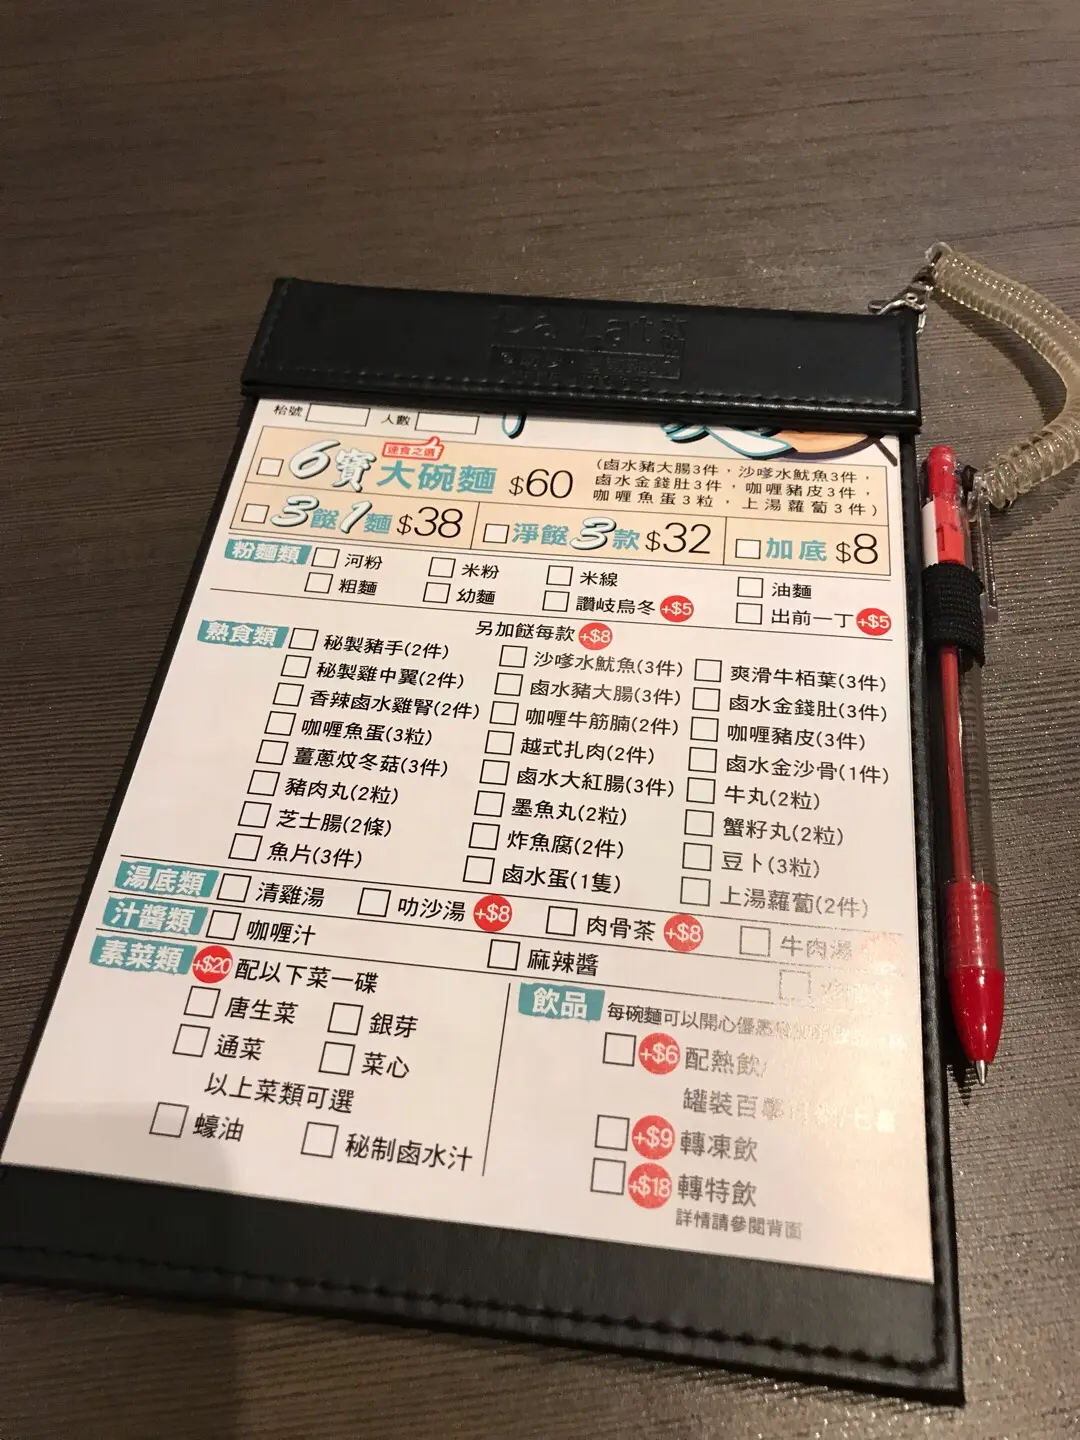 枱號 人數
6寶大碗麵 速食之選 $60 (鹵水豬大腸3件，沙嗲水魷魚3件，
鹵水金錢肚3件，咖喱豬皮3件，
咖喱魚蛋3粒，上湯蘿蔔3件)
3餸1麵 $38 淨餸3款 $32 加底 $8
粉麵類 河粉 米粉 米線 油麵
粗麵 幼麵 讚岐烏冬 +$5 出前一丁 +$5
熟食類 另加餸每款 +$8
秘製豬手(2件) 沙嗲水魷魚(3件) 爽滑牛栢葉(3件)
秘製雞中翼(2件) 鹵水豬大腸(3件) 鹵水金錢肚(3件)
香辣鹵水雞腎(2件) 咖喱牛筋腩(2件) 咖喱豬皮(3件)
咖喱魚蛋(3粒) 越式扎肉(2件) 鹵水金沙骨(1件)
薑蔥炆冬菇(3件) 鹵水大紅腸(3件) 牛丸(2粒)
豬肉丸(2粒) 墨魚丸(2粒) 蟹籽丸(2粒)
芝士腸(2條) 炸魚腐(2件) 豆卜(3粒)
魚片(3件) 鹵水蛋(1隻) 上湯蘿蔔(2件)
湯底類 清雞湯 叻沙湯 +$8 肉骨茶 +$8 牛肉湯
汁醬類 咖喱汁 麻辣醬
素菜類 +$20 配以下菜一碟
唐生菜 銀芽
通菜 菜心
以上菜類可選
蠔油 秘制鹵水汁
飲品 每碗麵可以開心優惠
+$6 配熱飲/
罐裝百
+$9 轉凍飲
+$18 轉特飲
詳情請參閱背面